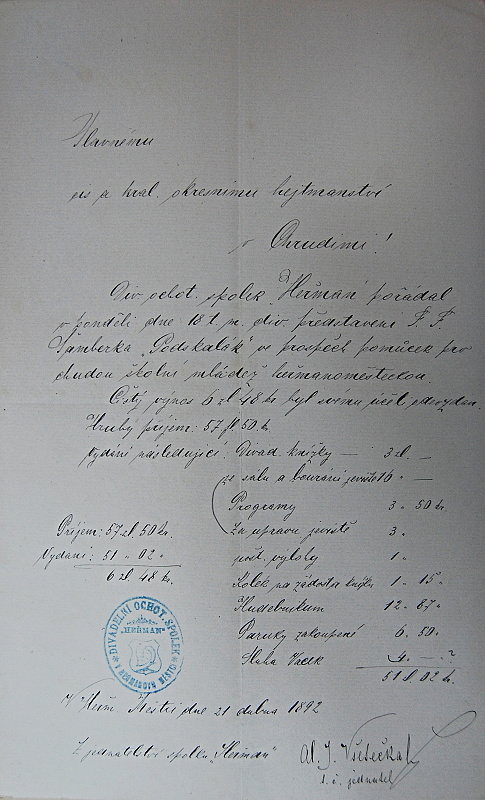 Slavnému
cís a král. okresnímu hejtmanství
v Chrudimi!
Div. ochot. spolek "Heřman" pořádal
v pondělí dne 18 t. m. div. představení F. F.
Šamberka "Podskalák" ve prospěch pomůcek pro
chudou školní mládež heřmanoměsteckou.
Čistý výnos 6 zl 48 kr byl svému účeli odevzdán.
Hrubý příjem: 57 zl 50 kr
Vydání následující: Divad knížky — 3 zl. —
ze sálu a bourání jeviště 16 " —
Programy 3 " 50 kr
Za úpravu jeviště 3 "
Příjem: 57 zl. 50 kr.
Vydání: 51 " 02 "
6 zl. 48 kr.
pošt. výlohy 1 "
Kolek na žádost a knížku 1 " 15 "
Hudebníkům 12 " 87 "
Paruky zakoupené 6 " 50 "
Sluha Vacek 4 " — "
51 zl. 02 kr.
DIVADELNÍ OCHOT. SPOLEK
"HEŘMAN"
V HEŘMANOVĚ MĚSTCI
V Heřm. Městci dne 21 dubna 1892
Z jednatelství spolku "Heřman"
Al. J. Všetečka
t. č. jednatel